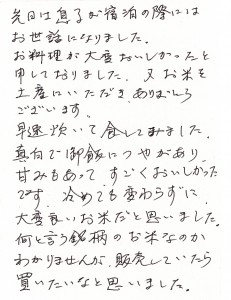 先日は息子が宿泊の際には
お世話になりました。
お料理が大変おいしかったと
申しておりました。又お米を
土産にいただき、ありがとう
ございます。
早速炊いて食してみました。
真白で御飯につやがあり、
甘みもあって すごくおいしかった
です。冷めても変わらずに
大変良いお米だと思いました。
何と言う銘柄のお米なのか
わかりませんが、販売していたら
買いたいなと思いました。